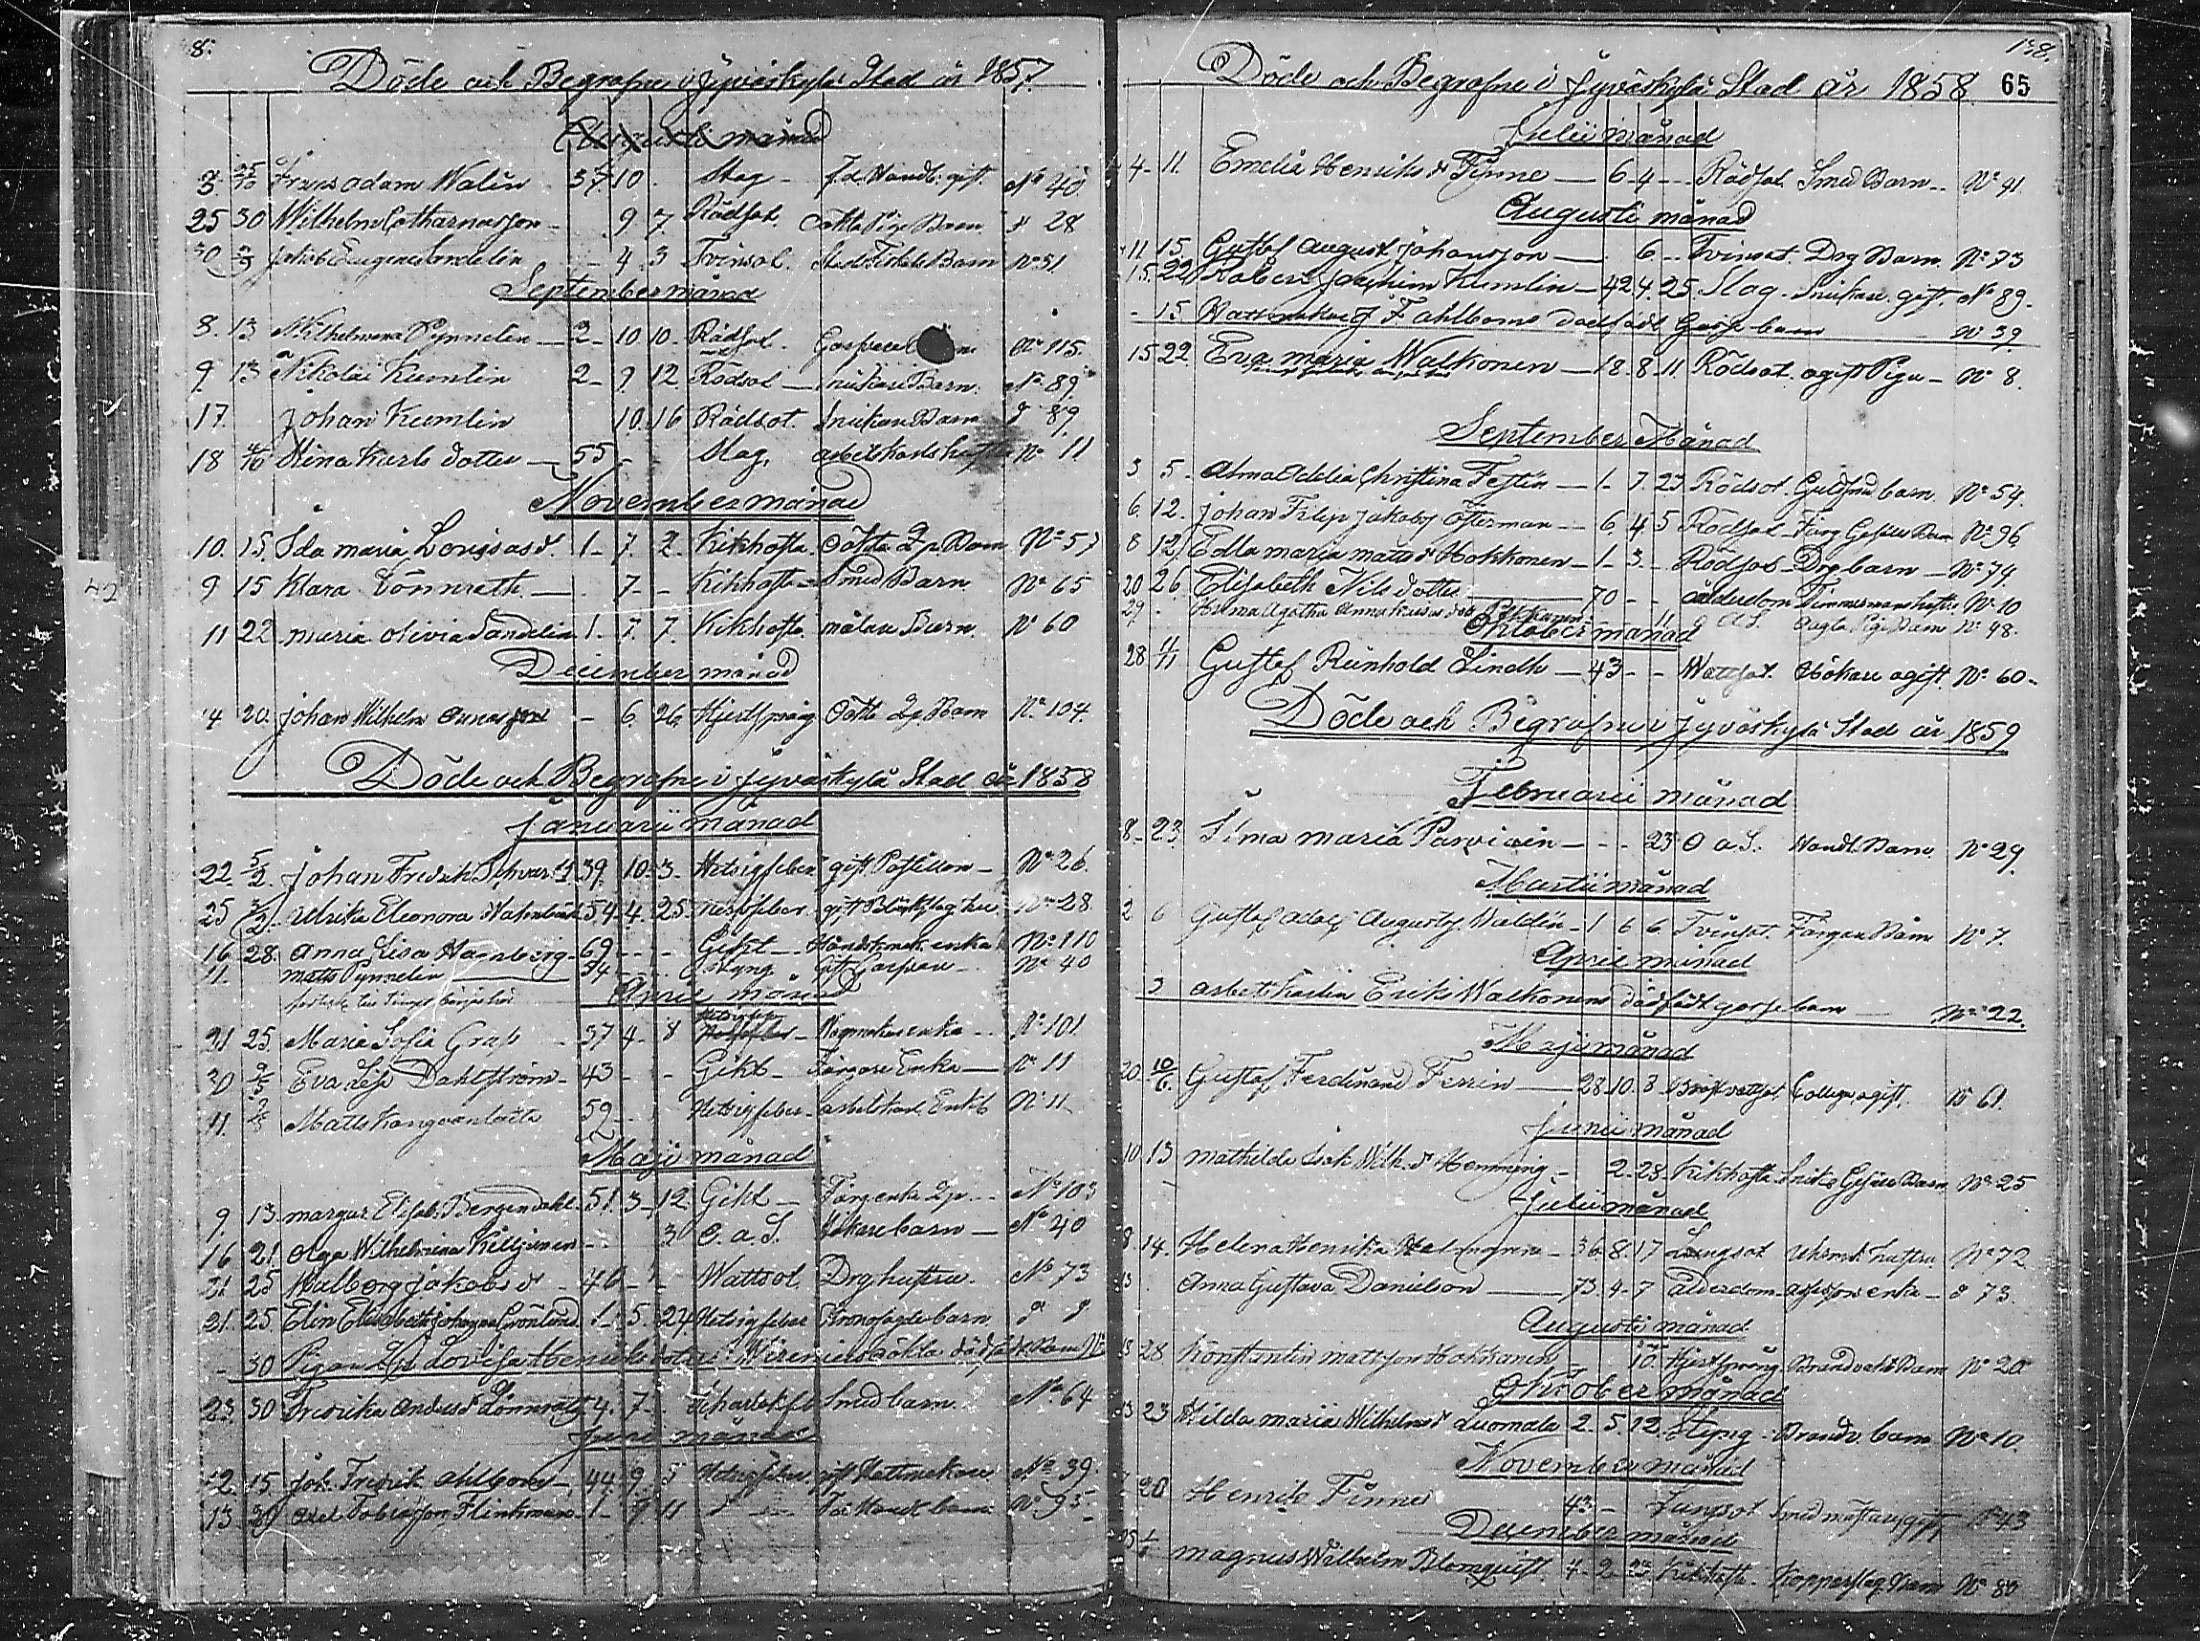 8.
Döde och Begrafne i Jyväskylä Stad år 1857.
Augusti månad
3. 25/10 Frans Adam Walin 37 10 Slag f.d. Handl. gift. No 40.
25 30 Wilhelm Catharnasson 9 7 Rödsot. Barn 28
30 Jakob Eugene Sandelin 4 3 Tvinsot. Barn No 31
September månad
8. 13 Wilhelmina Pynnelin 2 10 10 Rödsot. No 115.
9 13 Nikolai Kumlin 2 9 12 Rödsot Snikare Barn. No 89
17. Johan Kumlin 10 16 Rödsot. Snikare Barn 89
18 4/10 Stina Karls dotter 55 Slag. arbetskarls hustru No 11
November månad
10. 15. Ida Maria Lovisasd. 1 7 2 Kikhosta. oäkta Barn No 57
9 15 Klara Lönnroth 1 7 Kikhosta Smed Barn No 65
11 22 Maria Olivia Sandelin 1. 7. 7. Kikhosta målare Barn No 60
December månad
14 20. Johan Wilhelm Annasson 6 26 Hjertsprång Oäkta Barn No 104.
Döde och Begrafne i Jyväskylä Stad år 1858
Januarii månad
22. 5/2. Johan Fredrik Schvartz 39. 10 3 Hetsigfeber gift Postillon No 26.
25 3/2 Ulrika Eleonora 54. 4. 25. Nervfeber No 28.
16 28. Anna Lisa Hagnberg 69 Gikt enka No 110
11. Matts Pynnelin 34 Styng No 40
April månad
21 25. Maria Sofia Grap 37 4 8 Hetsigfeber enka No 101
30 2/5 Eva Lisa Dahlström 43 Gikt Färgare Enka No 11
11. 2/5 Matts Kangvanlaita 59 Hetsigfeber arbetskarl Enkl No 11
Maji månad
9. 13. Margar. Elisab. Bergendahl 51. 3 12 Gikt Färg enka No 103
16 21 Olga Wilhelmina Kiljunen 30 O. a. S. Hökare barn No 40
21 25 Walborg Jakobs dr 46 Wattsot. Drg hustru. No 73
21. 25. Elin Elisabeth Johanna Grönlund 1 5 24 Hetsigfeber Kronofogde barn
30 Pigan Lovisa Henriks dotter oäkta dödfödt Barn
23. 30 Fredrika Anders dr Lönnroth 4. 7 Scharlakf. Smed barn. No 64
Junii månad
12. 15. Joh. Fredrik Ahlbom 44 9 5 Hetsigfeber gift Hattmakare No 39.
13 20 Axel Tobiasson Flinkman 1 9 11 barn No 95
138.
65
Döde och Begrafne i Jyväskylä Stad år 1858
Julii månad
4 11. Emelia Henriks dr Finne 6 4 Rödsot. Smed Barn No 91
Augusti månad
11 15. Gustaf August Johansson 6 Tvinsot. Drg Barn. No 73
15. 22 Robert Joachim Kumlin 42 4. 25 Slag. Snikare. gift. No 89.
15 Hattmakar J. F. Ahlboms dödfödt Gosse barn No 39.
15 22. Eva Maria Walkonen 18. 8. 11. Rödsot. ogift Piga No 8.
September Månad
3 5 Alma Adelia Christina Festin 1 7. 23 Rödsot. Guldsmed barn No 54.
6. 12. Johan Filip Jakobs Österman 6. 4 5 Rödsot Färg Gesälls Barn No 96
8 12 Edla Maria Matts dr Hokkonen 1 3 Rödsot Drg barn No 74
20 26 Elisabeth Nils dotter 70 ålderdom Timmermans hustru No 10
29 Agatha Anna 11 O a S. oägta Barn No 48.
Oktober månad
28 1/11 Gustaf Reinhold Lindh 43 Wattsot. Hökare ogift. No 60
Döde och Begrafne i Jyväskylä Stad år 1859
Februarii månad
8 23. Silma Maria Parviain 23 O a S. Handl. Barn No 29.
Martii månad
2 6 Gustaf Adolf Augusts. Waldén 1 6 6. Tvinsot. Färgare Barn No 7.
April månad
3 arbets karlen Eriks Walkonens dödfödt gosse barn No 22.
Maji månad
20 10/6. Gustaf Ferdinand Ferrin 28 10. 3 Bröstvattsot. Collega ogift. No 61.
Junii månad
10 13 Mathilda Isak Wilh. dr Hemming 2 28. Kikhosta Snik. Gesälls Barn No 25
Julii månad
8. 14. Helena Henrika Holmgren 36. 8. 17 Lungsot Uhrmk. hustru No 72
13 Anna Gustava Danielson 73. 4 7 ålderdom enka 73.
Augusti månad
28 Konstantin Mattsson Hokkanen 10. Hjertsprång Brandvakts Barn No 20
Oktober månad
13 23 Hilda Maria Wilhelms dr Luomala 2. 5. 12. Styng Brandv. barn No 10.
November månad
20 Henrik Finne 43 Lungsot Smed mästare gift No 43
December månad
Magnus Wilhelm Blomqvist. 4 2 Kikhosta Kopparslag. Barn No 80